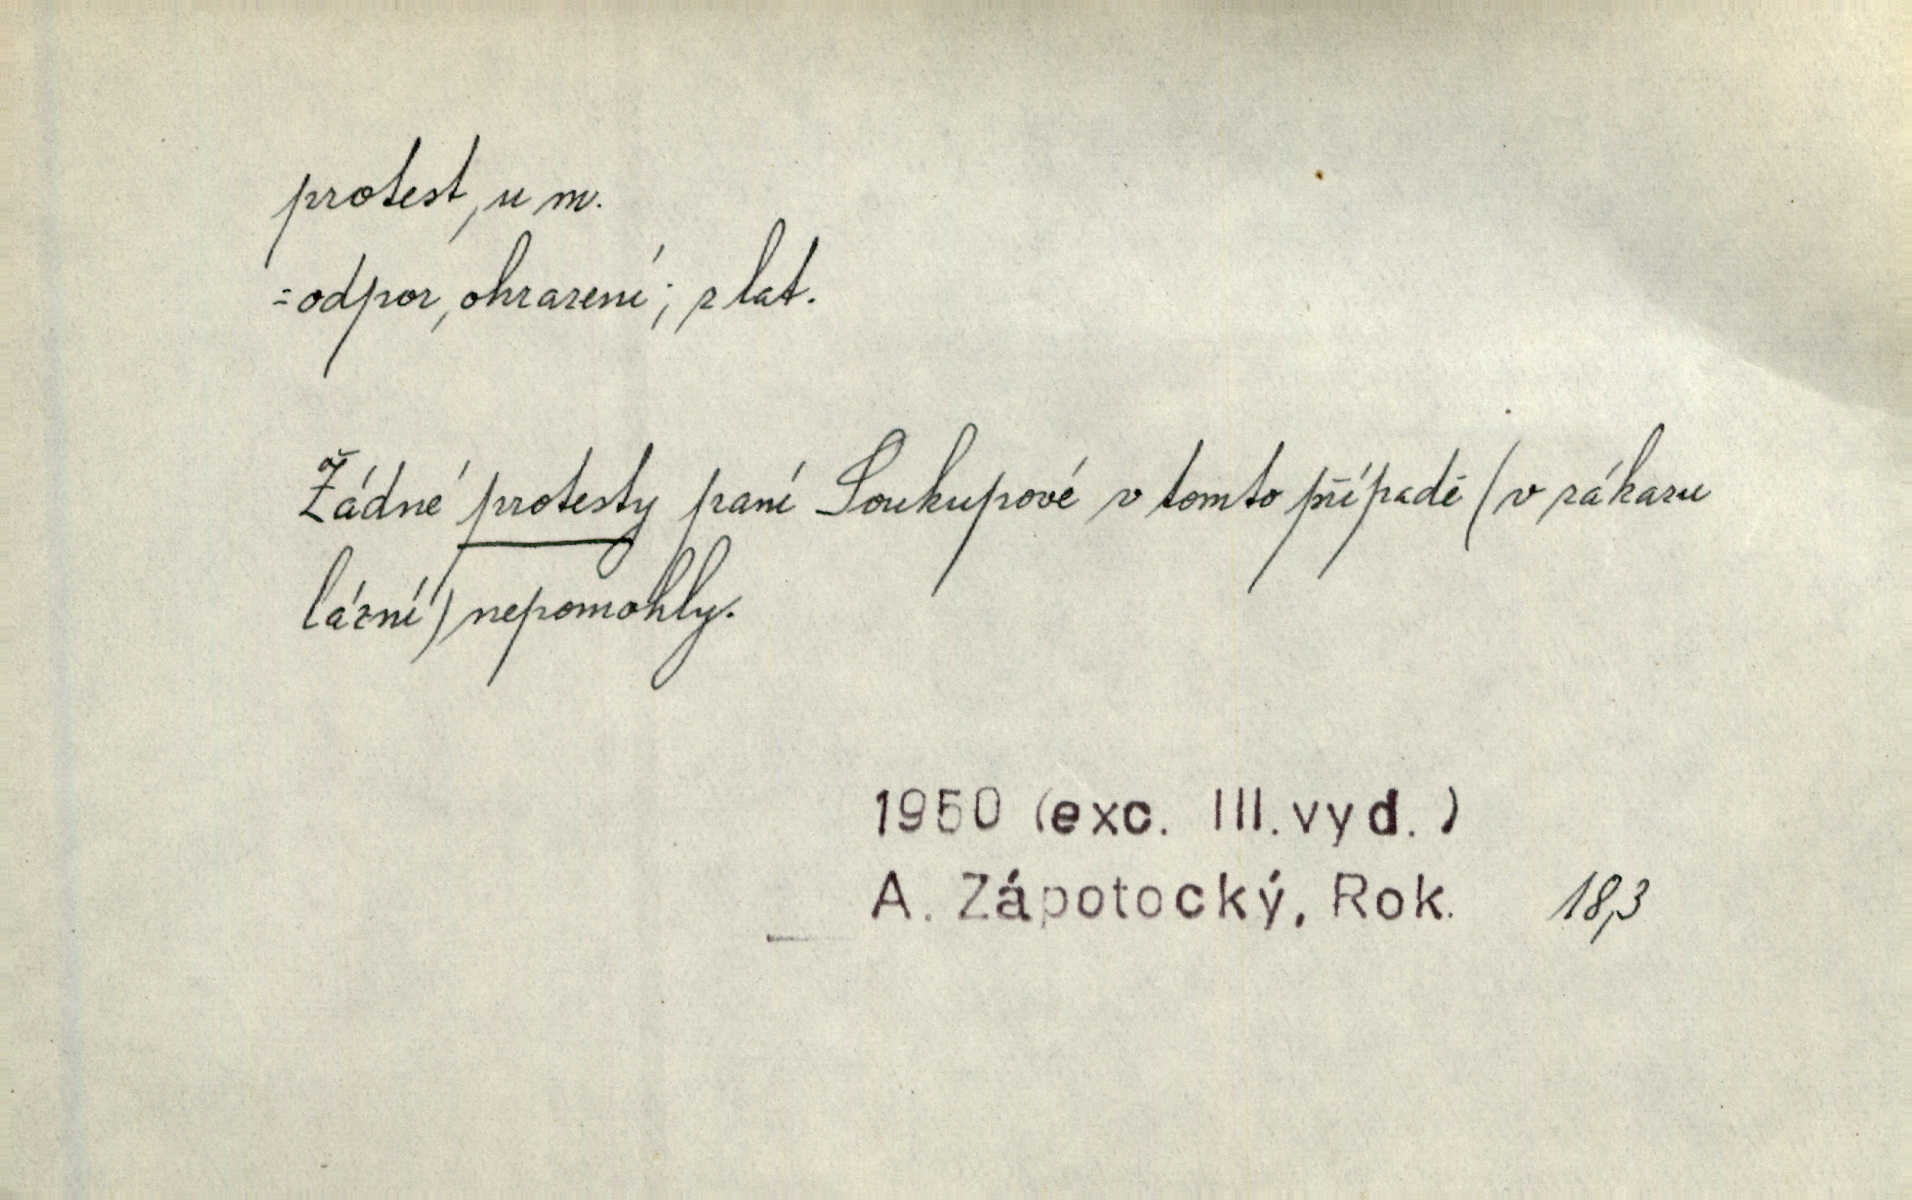 protest, u m.
=odpor, ohrazení; z lat.
Žádné protesty paní Soukupové v tomto případě (v zákazu
lázní) nepomohly.
1950 (exc. III.vyd.)
A. Zápotocký, Rok. 18,3